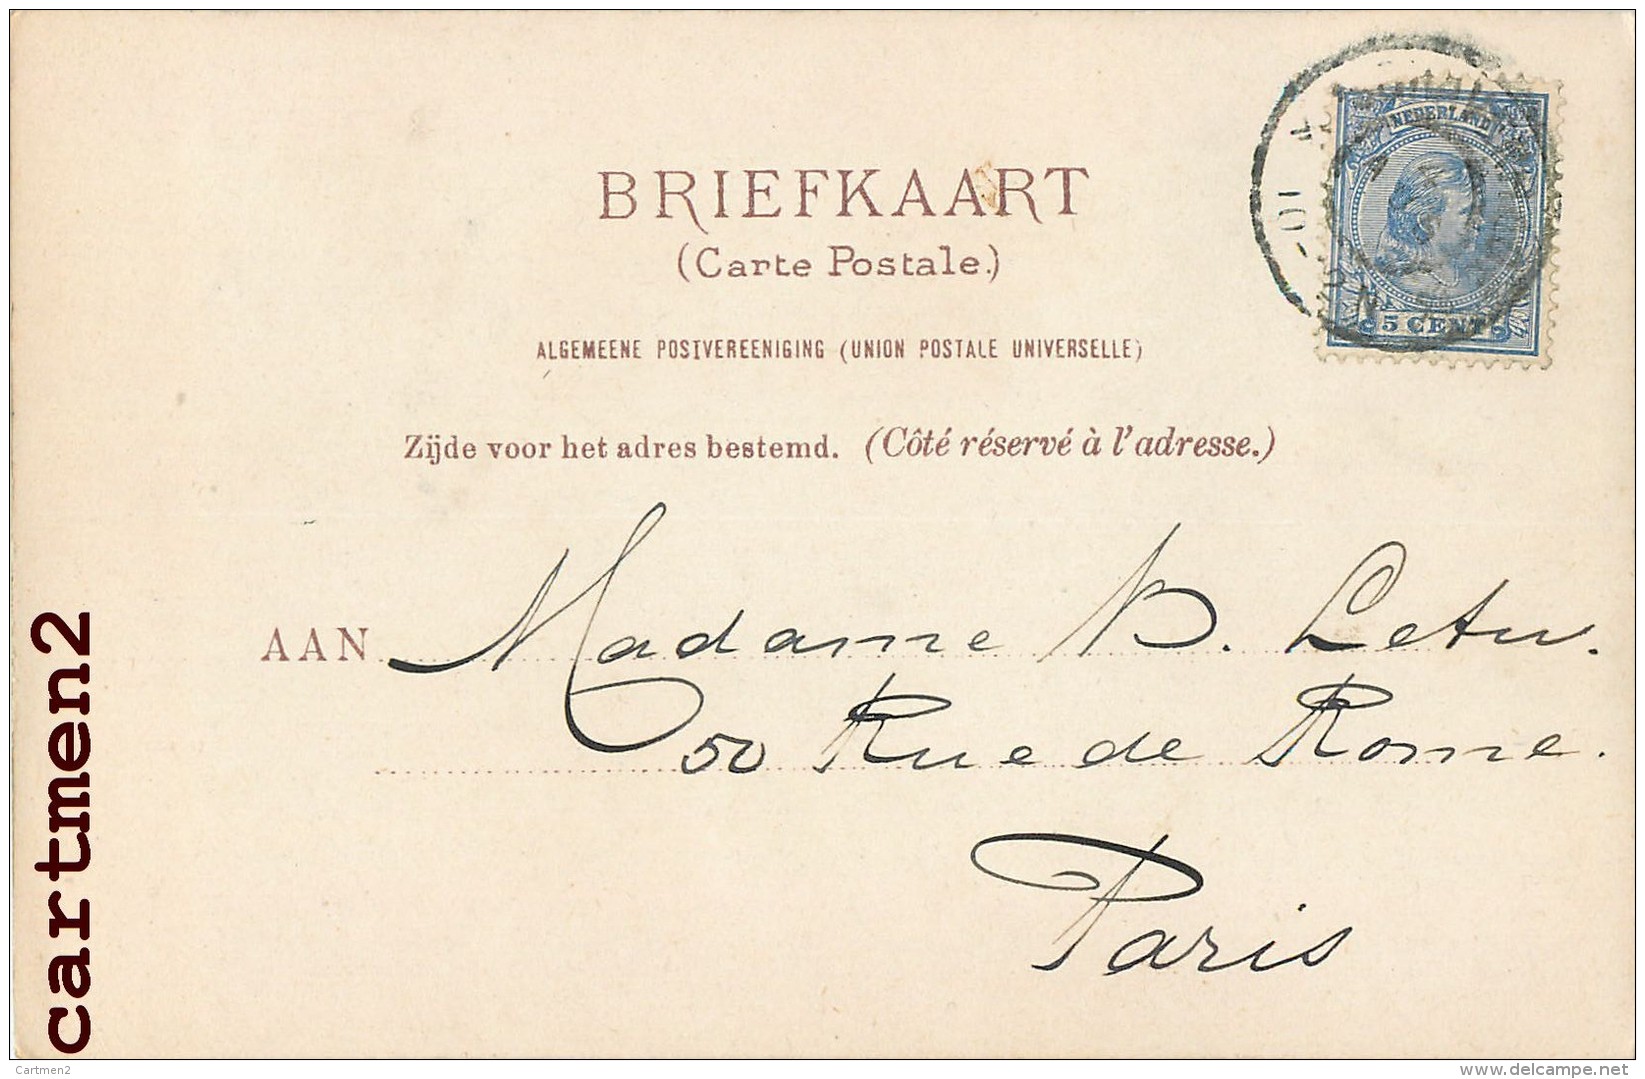 NEDERLAND
5 CENT
BRIEFKAART
(Carte Postale.)
ALGEMEENE POSTVEREENIGING (UNION POSTALE UNIVERSELLE)
Zijde voor het adres bestemd. (Côté réservé à l'adresse.)
AAN Madame B. Letu.
50 Rue de Rome.
Paris
cartmen2
Cartmen2
www.delcampe.net